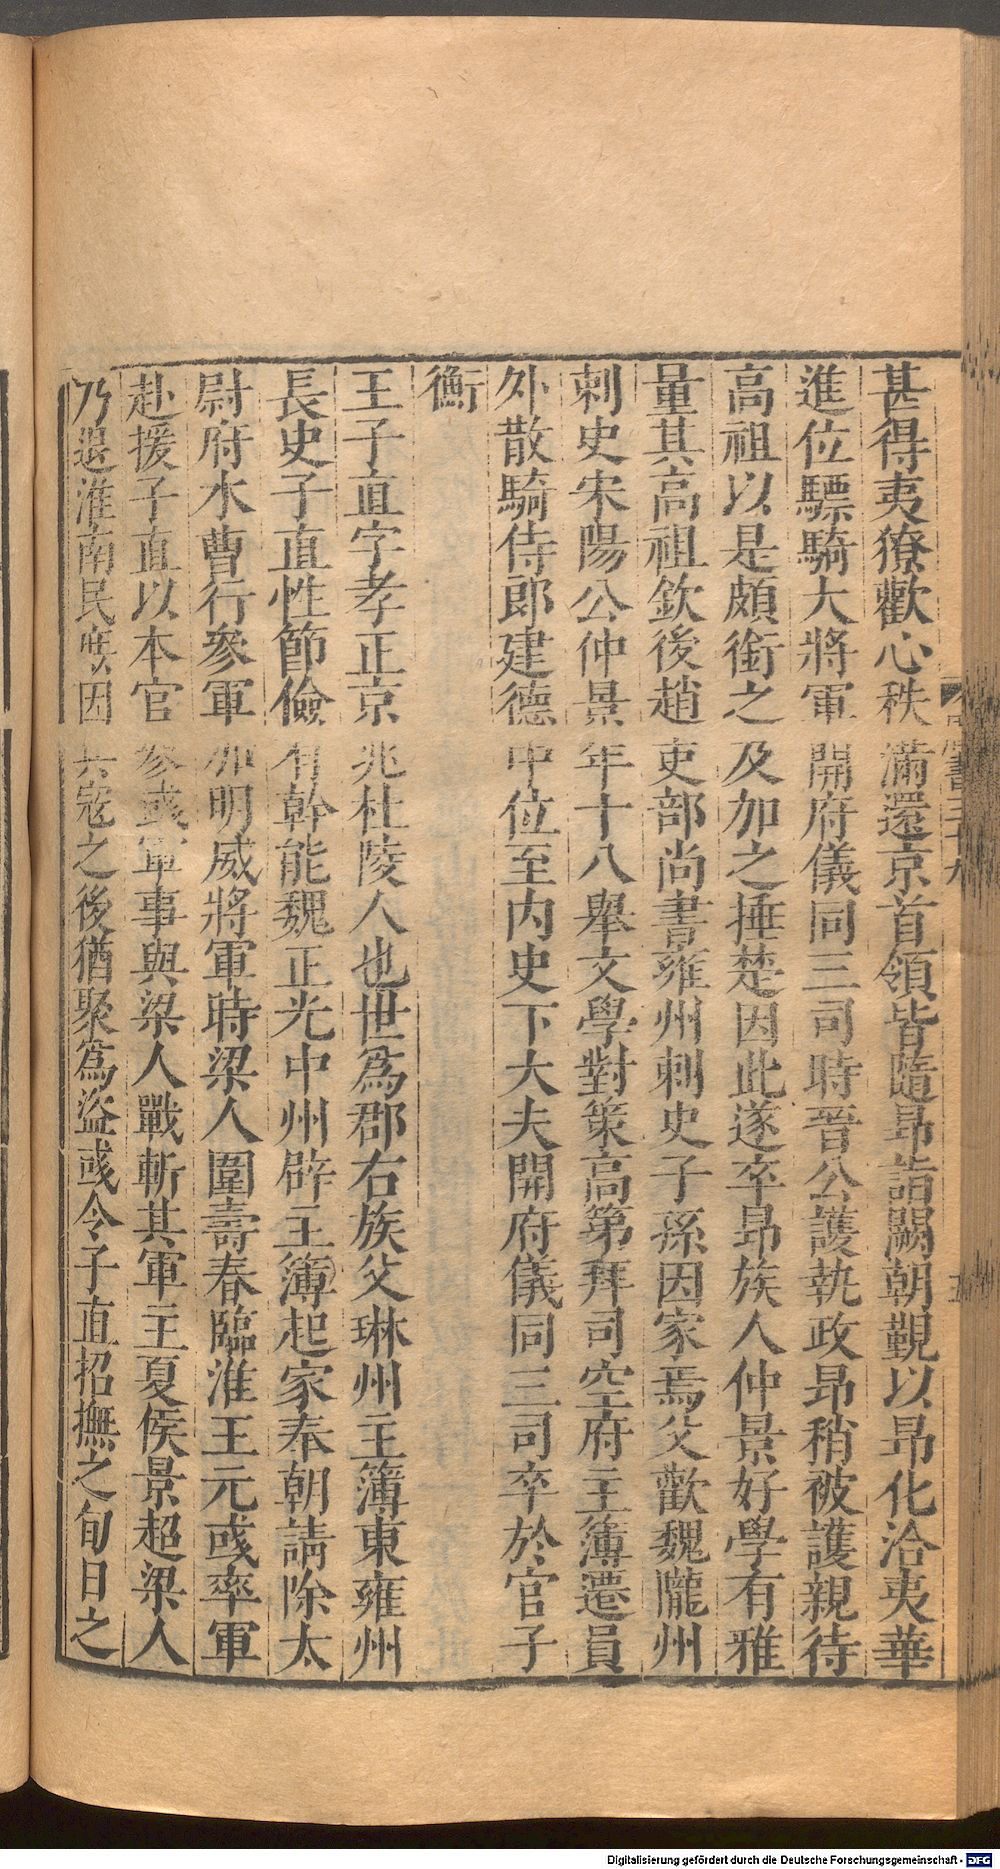 甚得夷獠歡心秩滿還京首領皆隨昂詣闕朝覲以昂化洽夷華
進位驃騎大將軍開府儀同三司時晉公護執政昂稍被護親待
高祖以是頗銜之及加之捶楚因此遂卒昂族人仲景好學有雅
量其高祖欽後趙吏部尚書雍州刺史子孫因家焉父歡魏隴州
刺史宋陽公仲景年十八舉文學對策高第拜司空府主簿遷員
外散騎侍郎建德中位至内史下大夫開府儀同三司卒於官子
衡
王子直字孝正京兆杜陵人也世爲郡右族父琳州主簿東雍州
長史子直性節儉有幹能魏正光中州辟主簿起家奉朝請除太
尉府水曹行參軍加明威將軍時梁人圍壽春臨淮王元彧率軍
赴援子直以本官參彧軍事與梁人戰斬其軍主夏侯景超梁人
乃退淮南民庶因兵寇之後猶聚爲盜彧令子直招撫之旬日之
書三十九
五
Digitalisierung gefördert durch die Deutsche Forschungsgemeinschaft - DFG